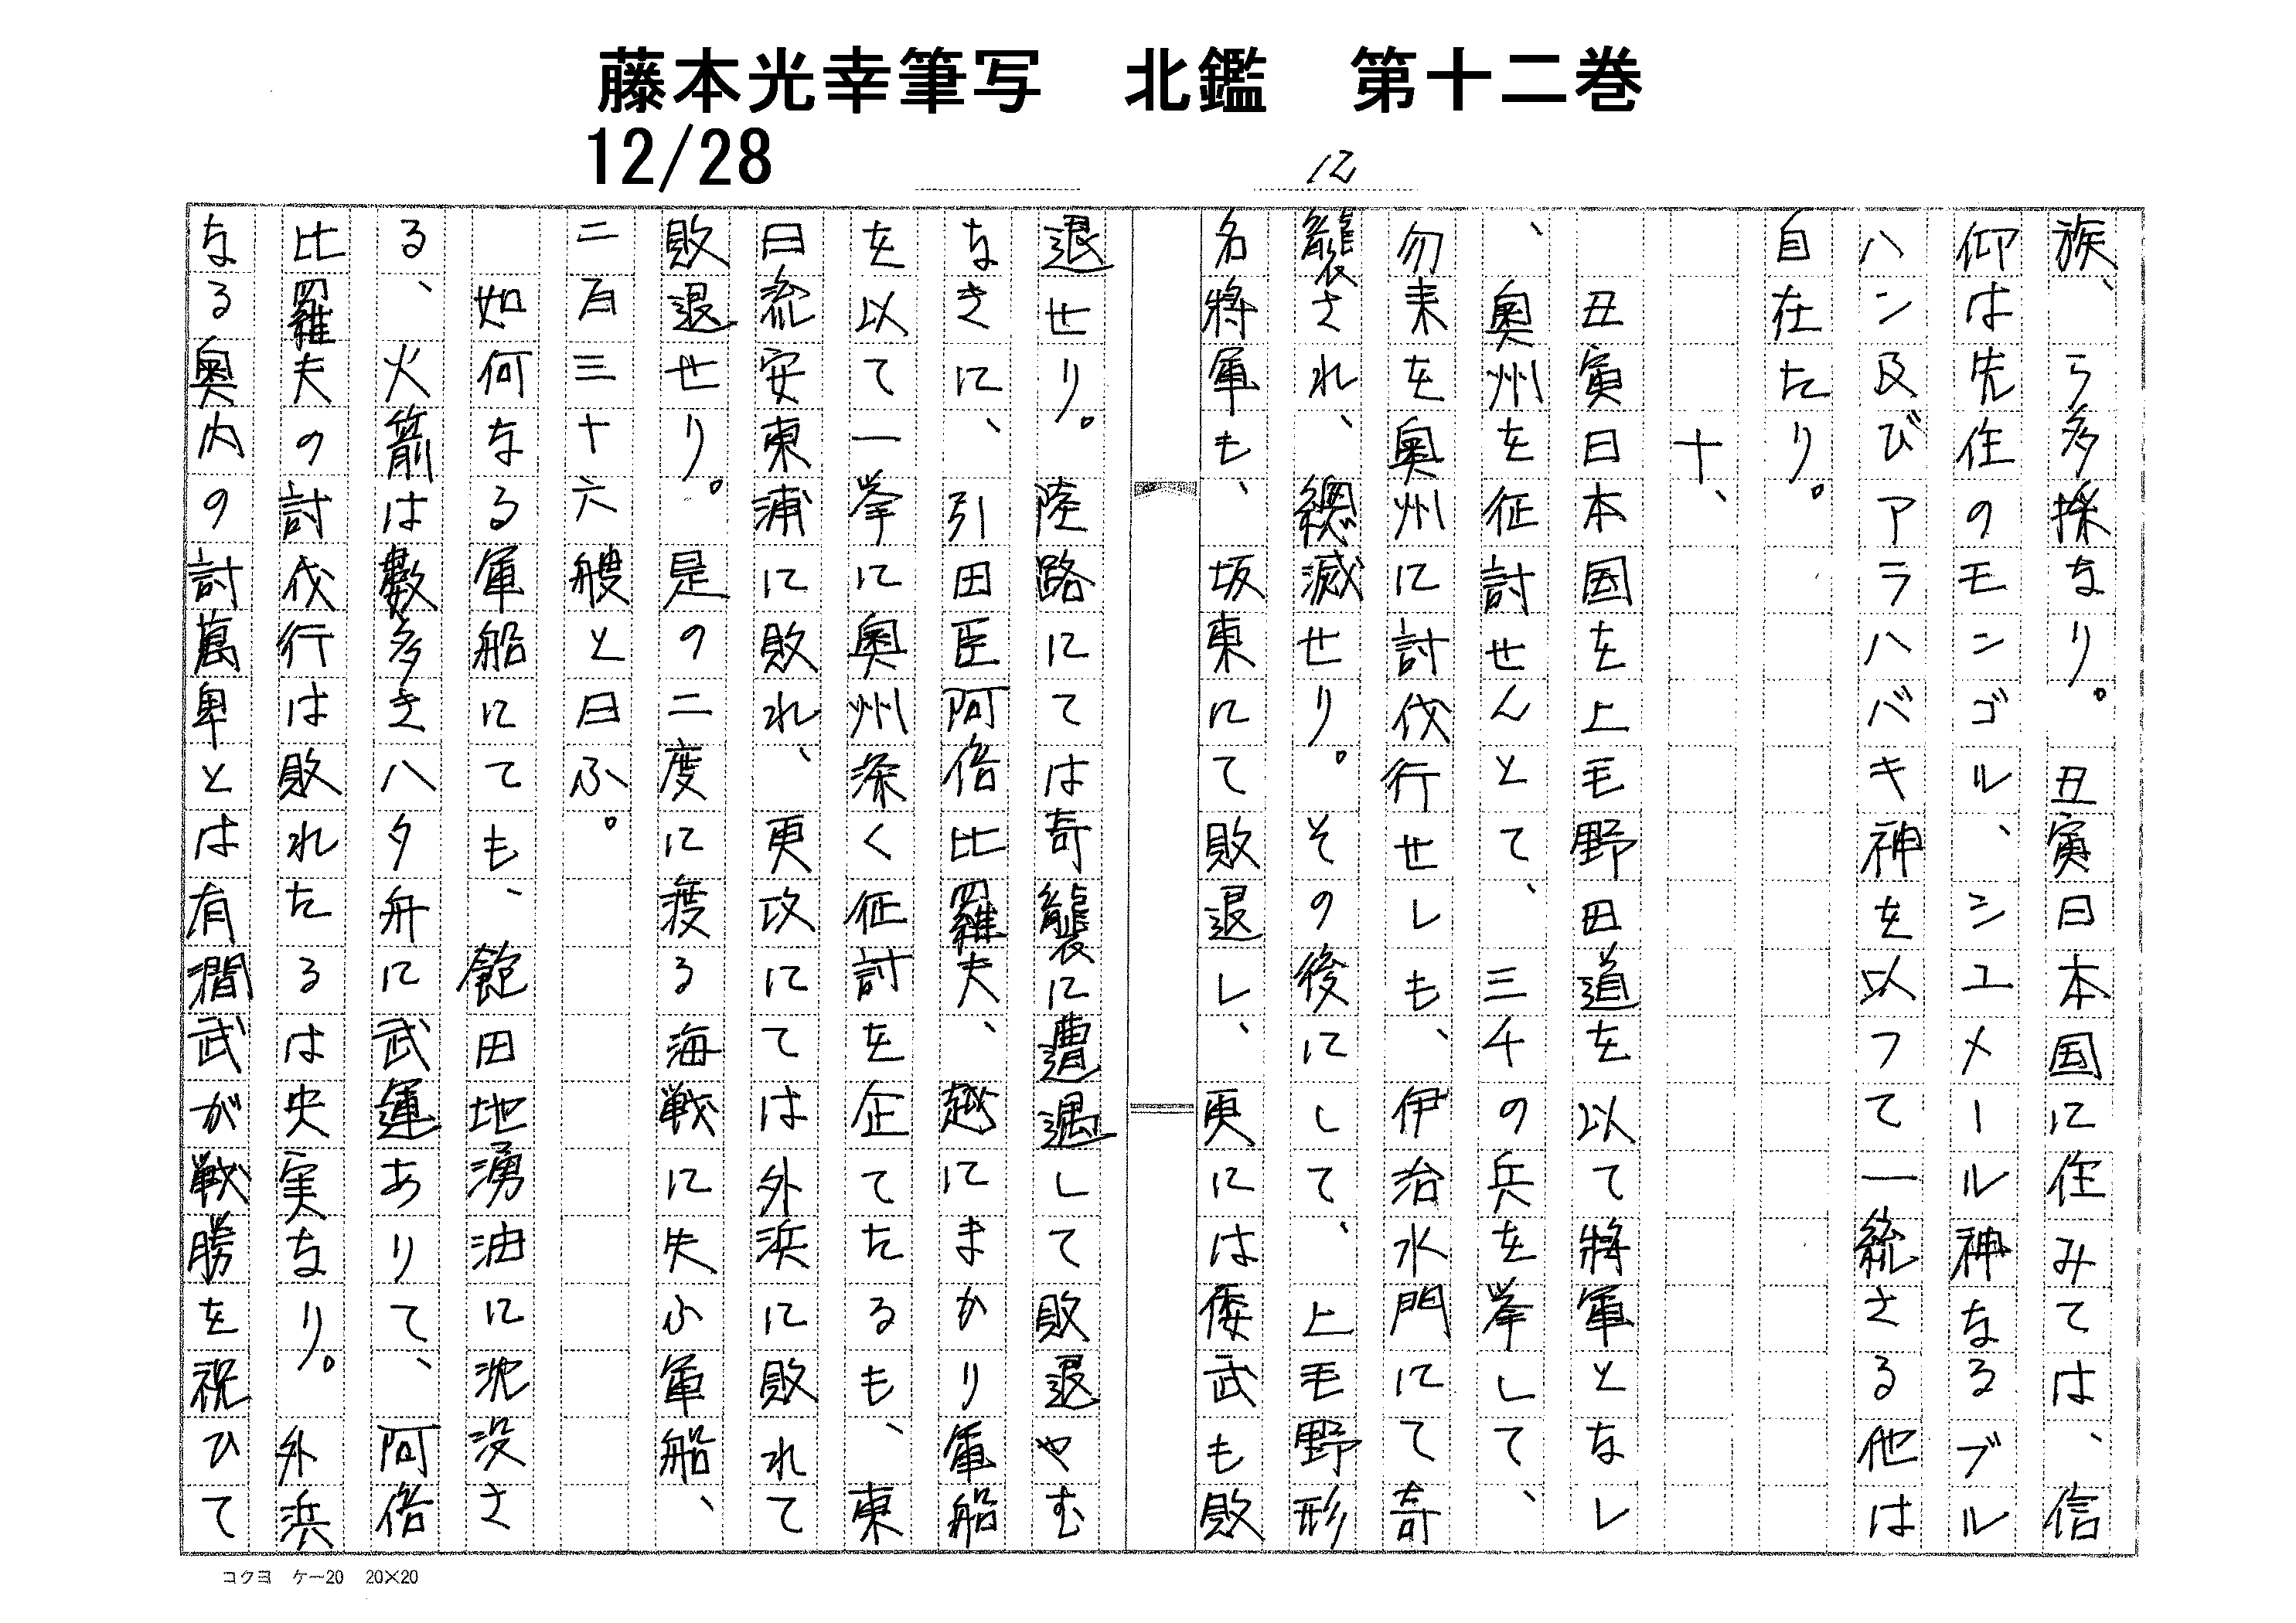 藤本光幸筆写　北鑑　第十二巻
12/28
12
族、　ら多採なり。　丑寅日本国に住みては、信
仰は先住のモンゴル、シユメール神なるブル
ハン及びアラハバキ神を以って一統さる他は
自在たり。
十、
丑寅日本国を上毛野田道を以て将軍となし
、奥州を征討せんとて、三千の兵を挙して、
勿来を奥州に討伐行せしも、伊治水門にて奇
襲され、總滅せり。その後にして、上毛野形
名将軍も、坂東にて敗退し、更には倭武も敗
退せり。陸路にては奇襲に遭遇して敗退やむ
なきに、引田臣阿倍比羅夫、越にまかり軍船
を以て一挙に奥州深く征討を企てたるも、東
日流安東浦に敗れ、更攻にては外浜に敗れて
敗退せり。是の二度に渡る海戦に失ふ軍船、
二百三十六艘と曰ふ。
如何なる軍船にても、飽田地湧油に沈没さ
る、火箭は數多き八夕舟に武運ありて、阿倍
比羅夫の討伐行は敗れたるは史実なり。外浜
なる奥内の討萬卑とは有澗武が戦勝を祝ひて
コクヨ　ケー20　20×20